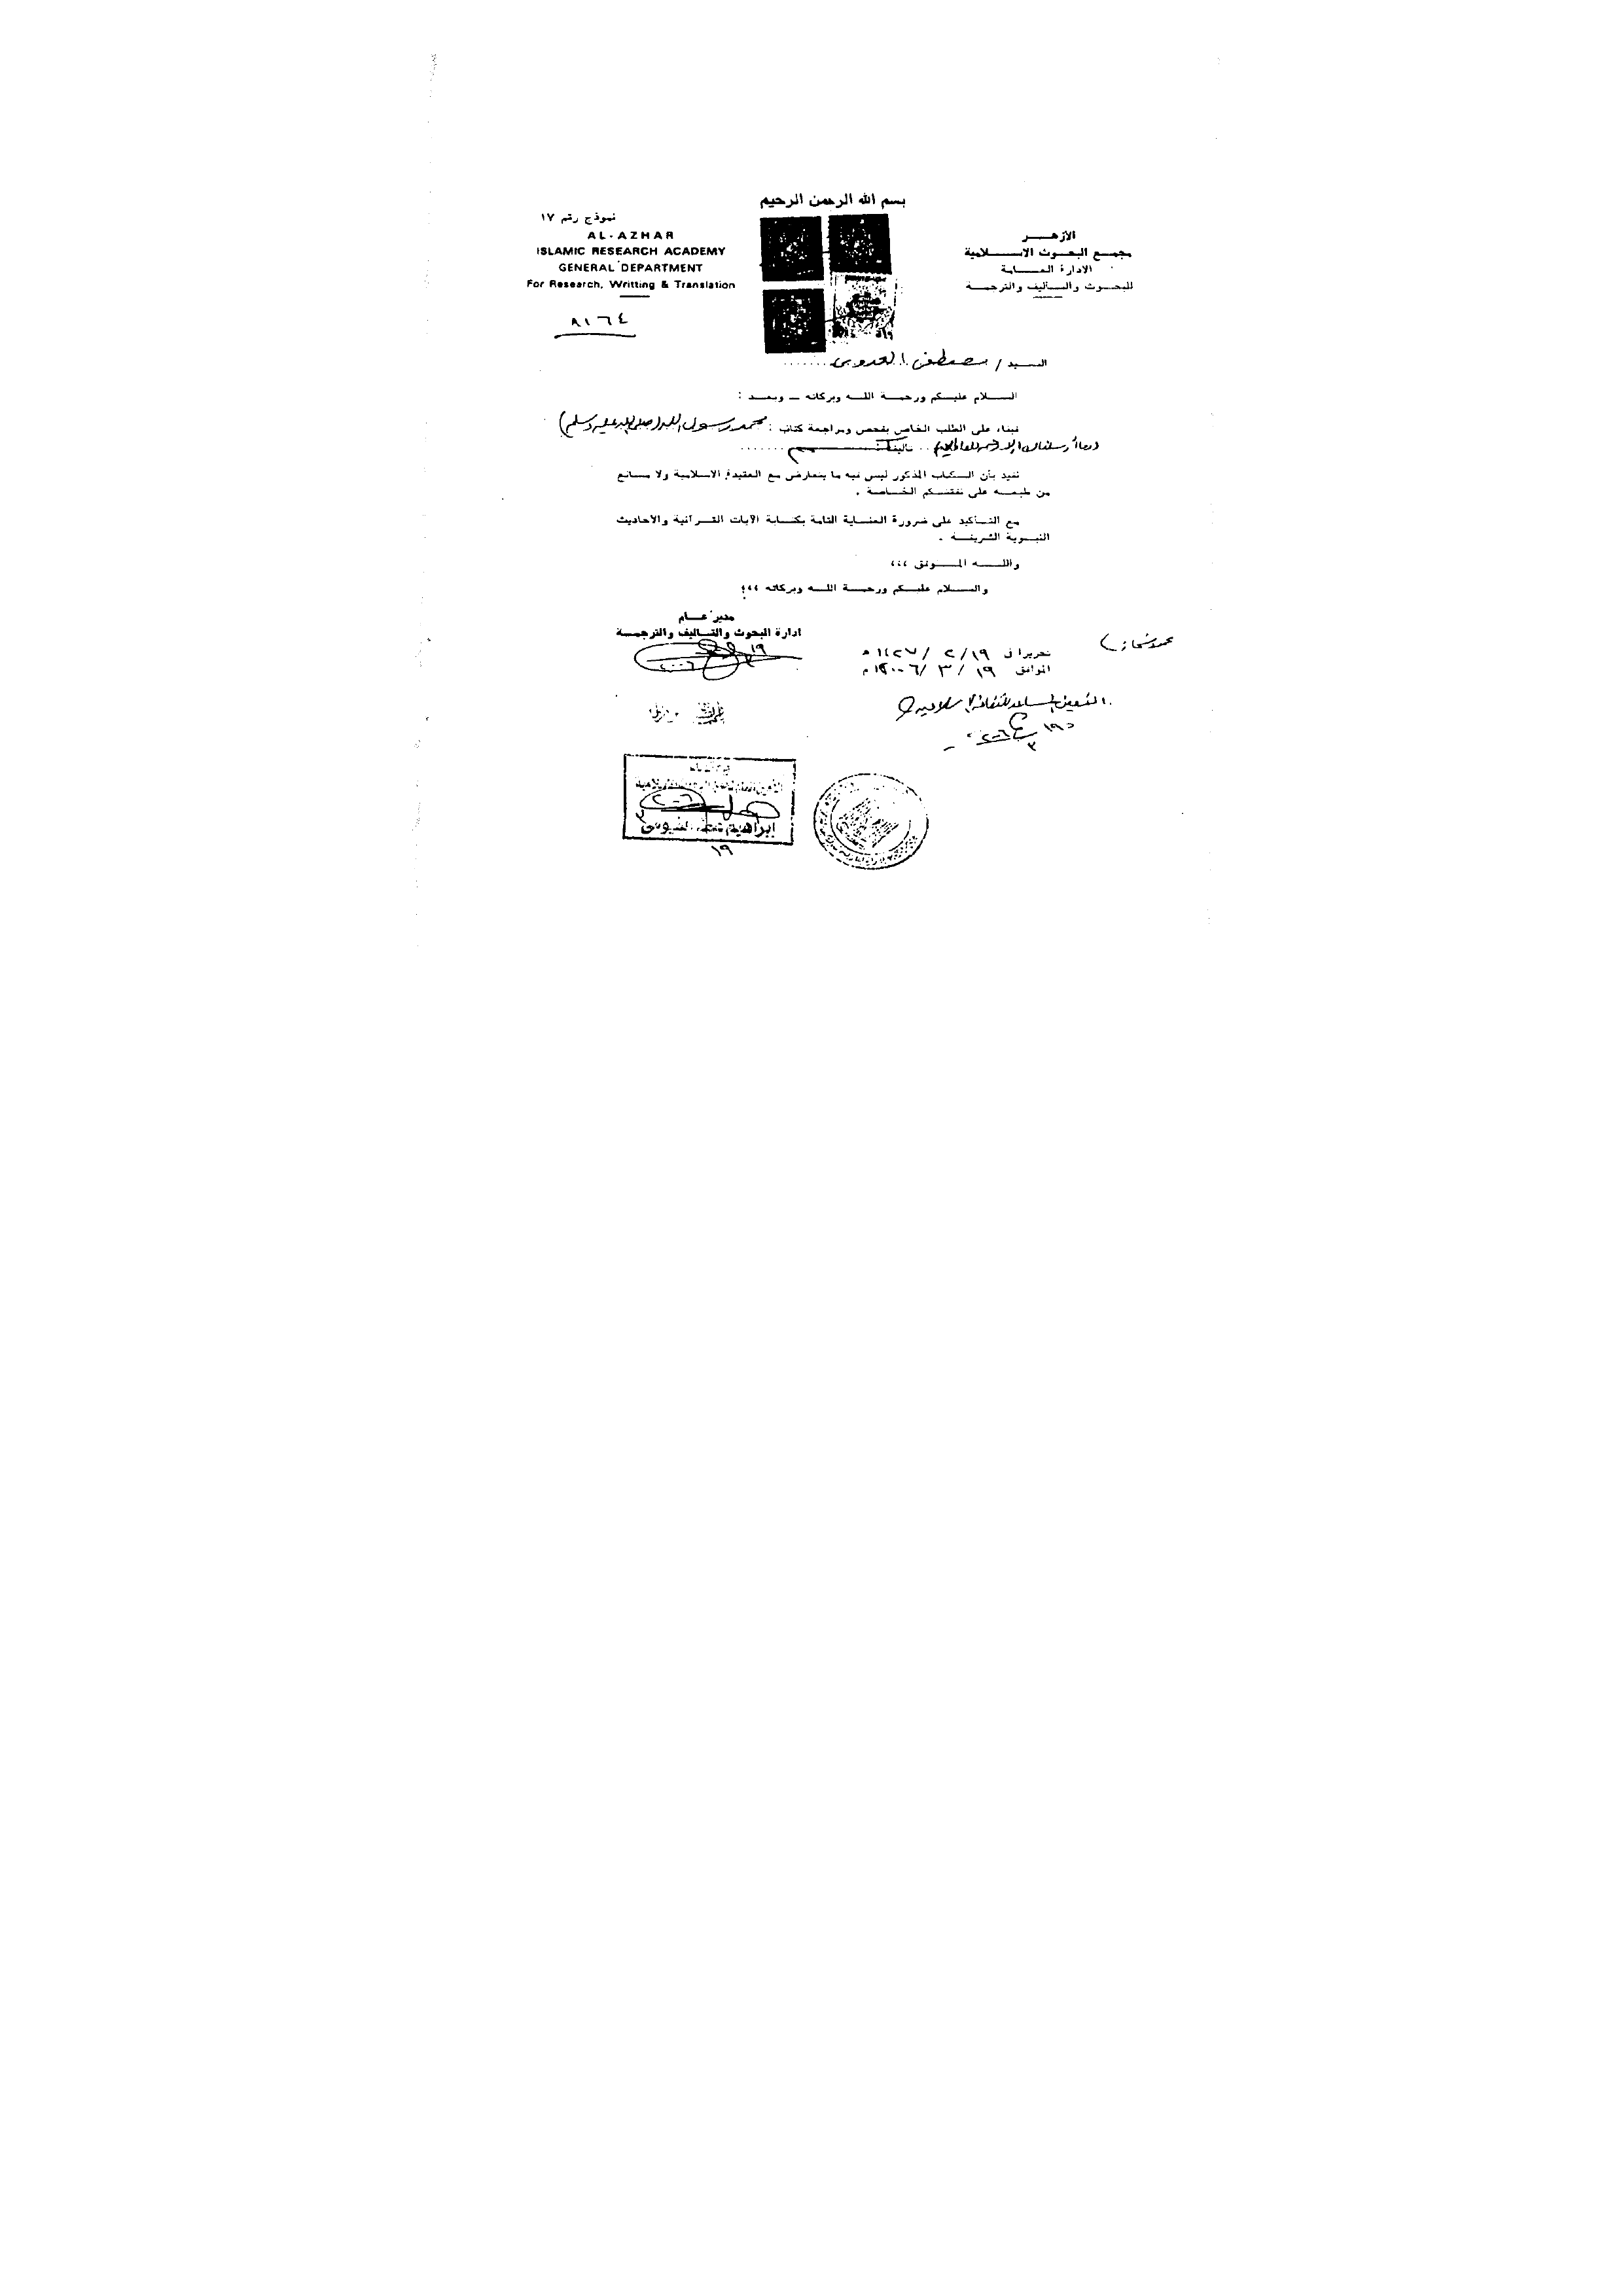 بسم الله الرحمن الرحيم
الأزهـــر
مجمـع البحـوث الاســـلامية
الادارة العـــامة
للبحـوث والتـأليف والترجمـة
نموذج رقم ١٧
AL-AZHAR
ISLAMIC RESEARCH ACADEMY
GENERAL DEPARTMENT
For Research, Writting & Translation
٨١٦٤
السـيد / مصطفى العدوى
السـلام عليـكم ورحمـة اللـه وبركاته ــ وبعـد :
فبناء على الطلب الخاص بفحص ومراجعة كتاب : محمد رسول الله (صلى الله عليه وسلم)
وما أرسلناك إلا رحمة للعالمين .. تأليف :
نفيد بأن الـكتاب المذكور ليس فيه ما يتعارض مع العقيدة الاسـلامية ولا مـانع
من طبعـه على نفقتـكم الخـاصة .
مع التـأكيد على ضرورة العنـاية التامة بكتـابة الآيات القـرآنية والأحاديث
النبـوية الشريفـة .
واللــه المــوفق ،،،
والسـلام عليـكم ورحمـة اللـه وبركاته ،،،
مدير عـــام
ادارة البحوث والتـأليف والترجمـة
١٩
٢٠٠٦
تحريرا فى ١٩/ ٢ / ١٤٢٧ هـ
الموافق ١٩ / ٣ / ٢٠٠٦ م
٢٠٠٦
ابراهيم
١٩